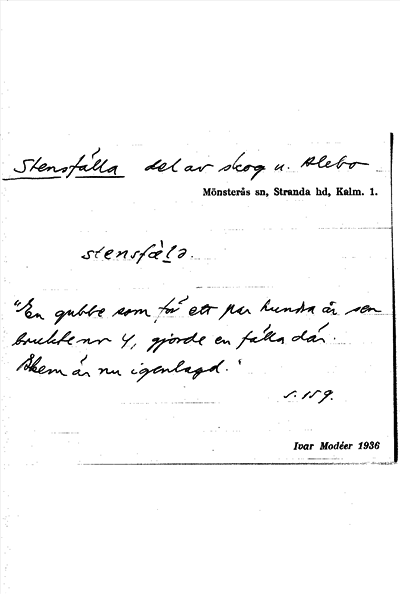 Stensfälla del av skog u. Alebo
Mönsterås sn, Stranda hd, Kalm. l.
stensfälə.
"En gubbe som för ett par hundra år sen
brukte nr 4, gjorde en fälla där.
är nu igenlagd."
s. 159.
Ivar Modéer 1936